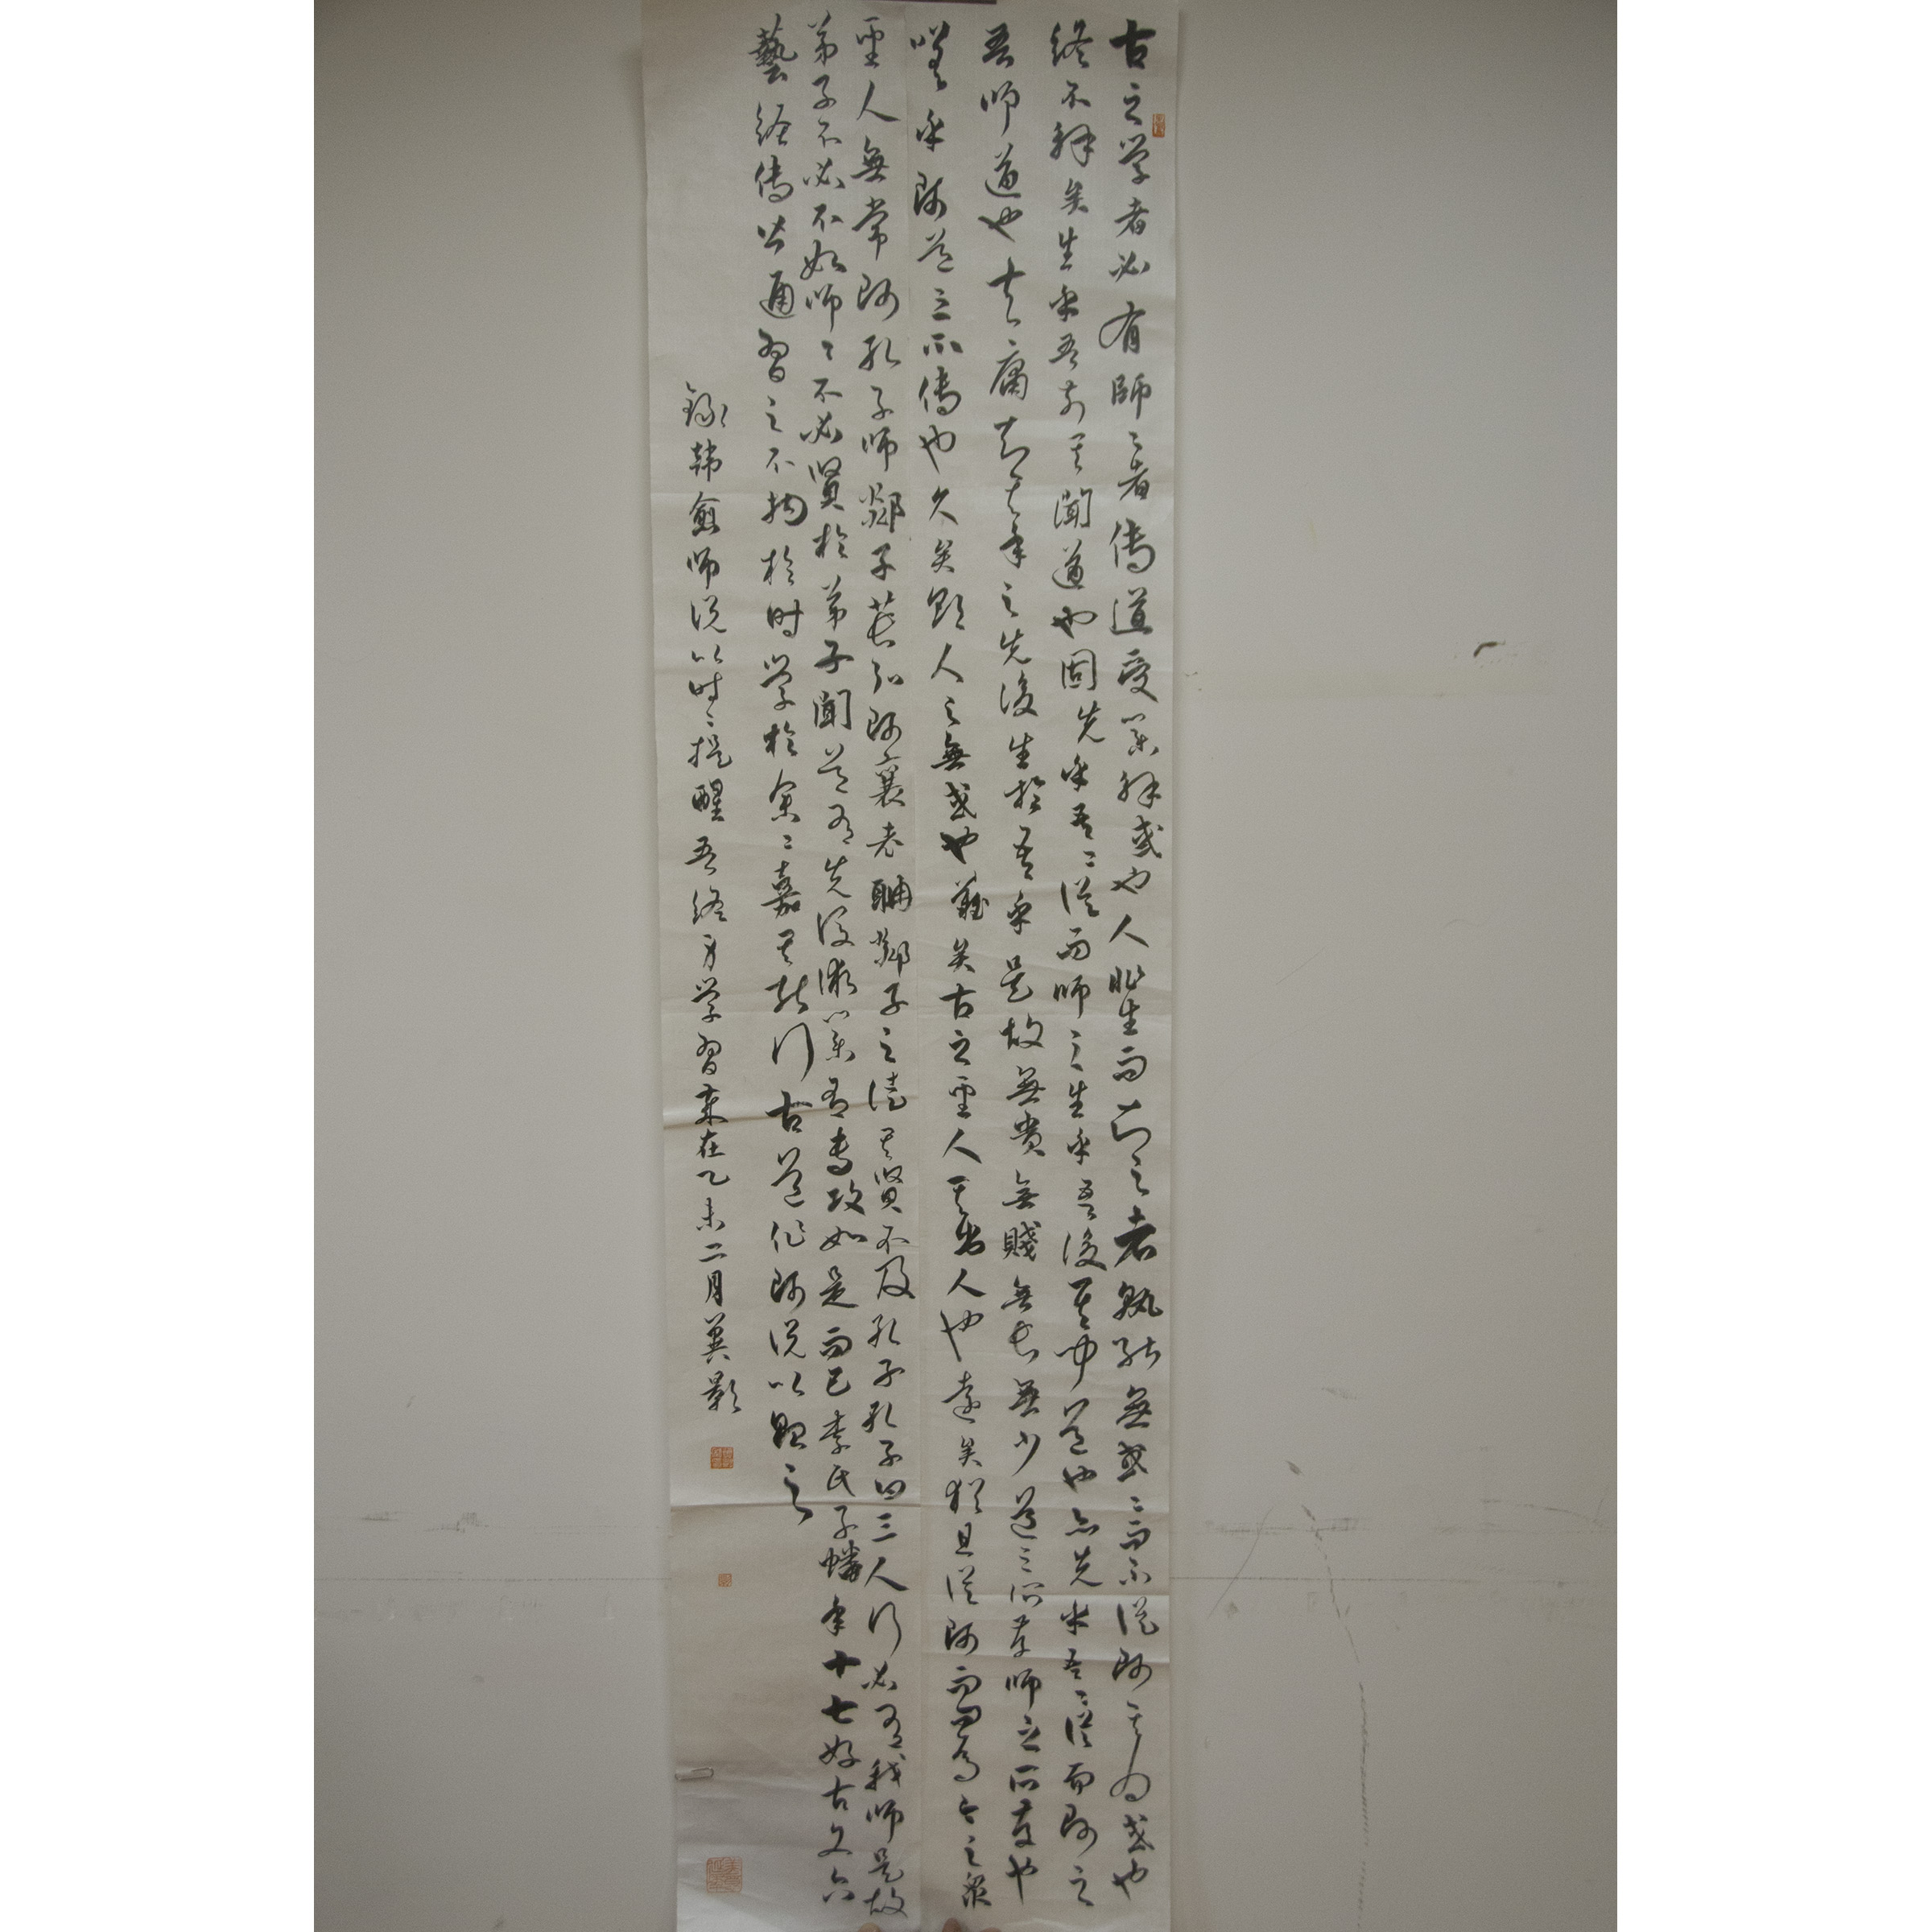 古之学者必有師〻者傳道受業解惑也人非生而知之者孰能無惑〻而不從師其为惑也
終不解矣生乎吾前其聞道也固先乎吾〻從而師之生乎吾後其聞道也亦先乎吾〻從而師之
吾師道也夫庸知其年之先後生於吾乎是故無貴無賤無長無少道之所存師之所存也
嗟乎師道之不傳也久矣欲人之無惑也難矣古之聖人其出人也遠矣猶且從師而問焉今之衆
聖人無常師孔子師郯子萇弘師襄老聃郯子之徒其賢不及孔子孔子曰三人行必有我師是故
弟子不必不如師〻不必賢於弟子聞道有先後術業有專攻如是而已李氏子蟠年十七好古文六
藝經傳皆通習之不拘於时学於余〻嘉其能行古道作師说以貽之
錄韓愈师说以时〻提醒吾終身学習歲在乙未二月英影